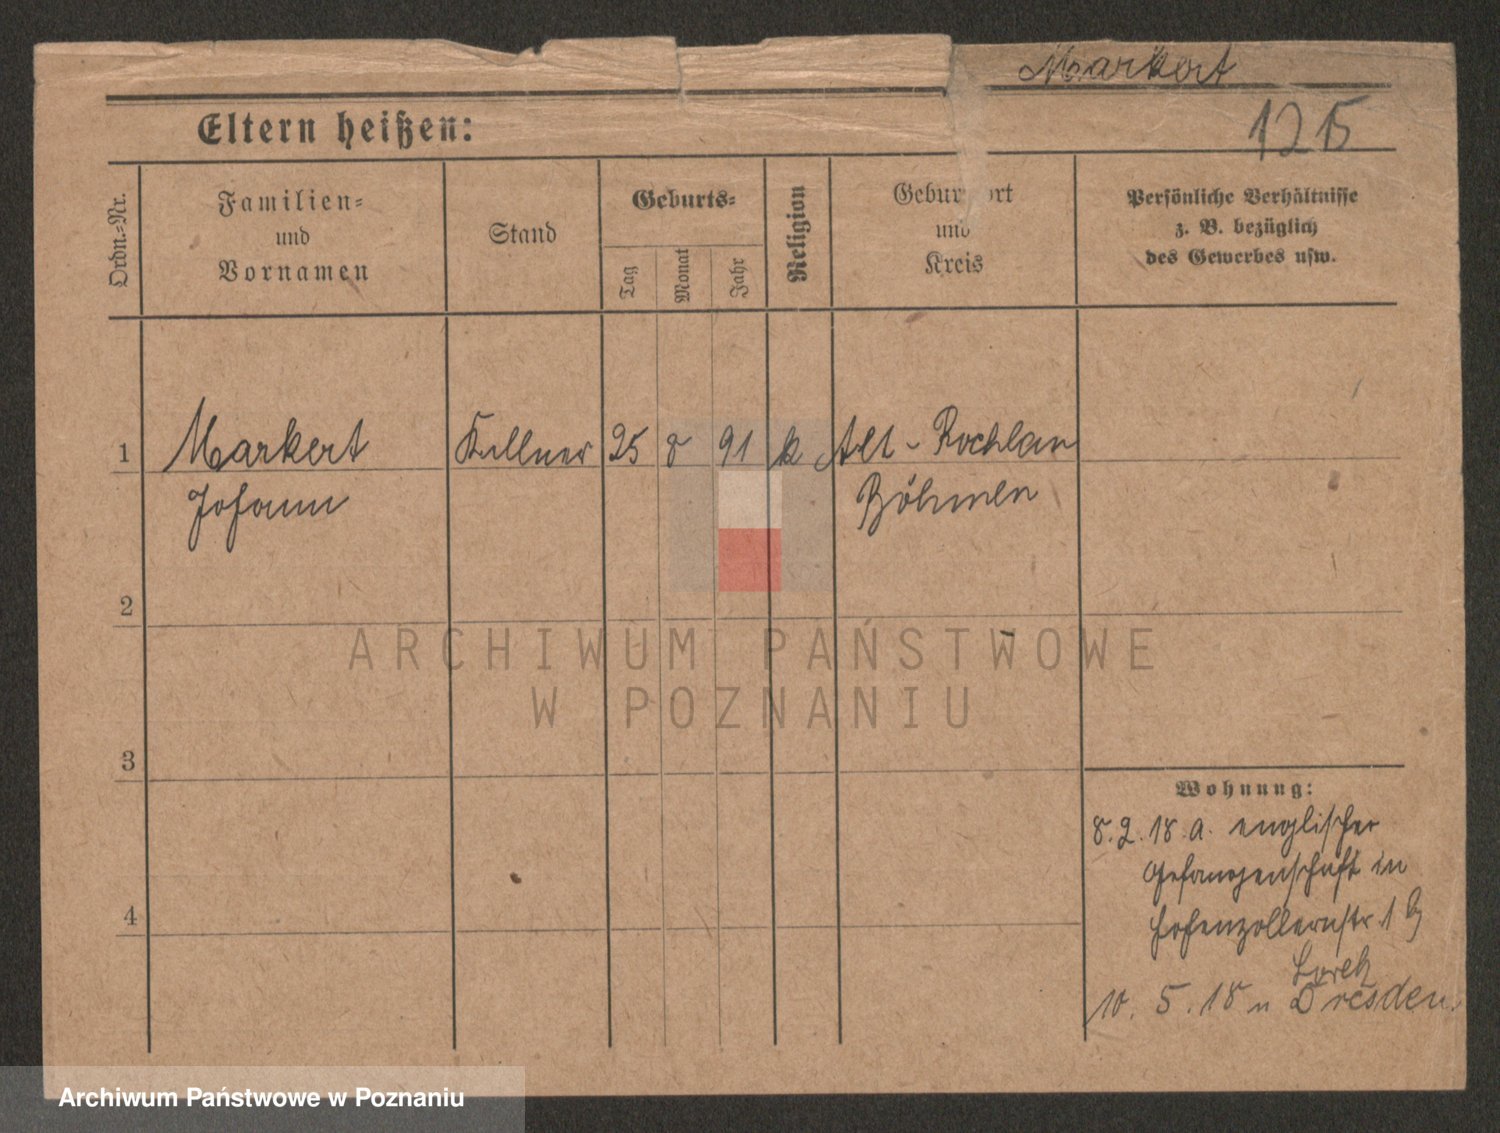 Markert
1215
Eltern heißen:
Ordn.-Nr.
Familien-
und
Vornamen
Stand
Geburts-
Tag
Monat
Jahr
Religion
Geburtsort
und
Kreis
Persönliche Verhältnisse
z. B. bezüglich
des Gewerbes usw.
1 Markert Kellner 25 8 91 k Alt-Rochlau
Johann Böhmen
2
3
4
Wohnung:
8.2.18 a. englischer
Gefangenschaft in
Hohenzollernstr. 1 b
10. 5. 18 n Dresden.
ARCHIWUM PAŃSTWOWE
W POZNANIU
Archiwum Państwowe w Poznaniu